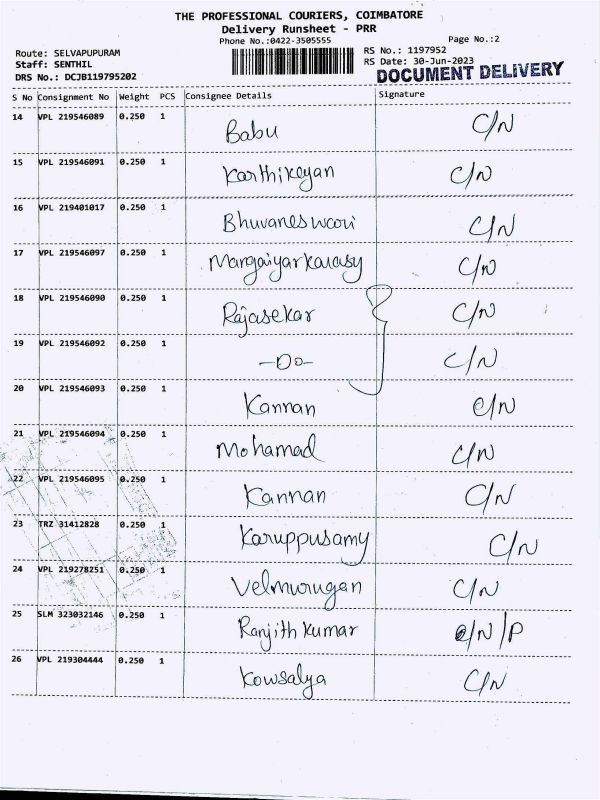 THE PROFESSIONAL COURIERS, COIMBATORE
Delivery Runsheet - PRR
Phone No.:0422-3505555
Page No.:2
Route: SELVAPUPURAM
RS No.: 1197952
Staff: SENTHIL
RS Date: 30-Jun-2023
DRS No.: DCJB119795202
DOCUMENT DELIVERY
S No Consignment No Weight PCS Consignee Details Signature
14 VPL 219546089 0.250 1 Babu C/N
15 VPL 219546091 0.250 1 Karthikeyan C/N
16 VPL 219401017 0.250 1 Bhuvaneswari C/N
17 VPL 219546097 0.250 1 Margaiyarkarasy C/N
18 VPL 219546090 0.250 1 Rajasekar C/N
19 VPL 219546092 0.250 1 -Do- C/N
20 VPL 219546093 0.250 1 Kannan C/N
21 VPL 219546094 0.250 1 Mohamad C/N
22 VPL 219546095 0.250 1 Kannan C/N
23 TRZ 31412828 0.250 1 Karuppusamy C/N
24 VPL 219278251 0.250 1 Velmurugan C/N
25 SLM 323032146 0.250 1 Ranjith Kumar C/N/P
26 VPL 219304444 0.250 1 Kowsalya C/N